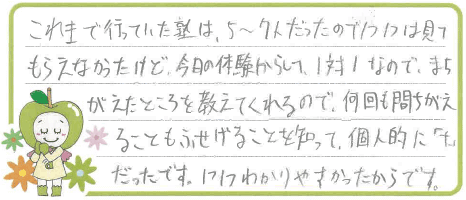 これまで行っていた塾は、5～7人だったので1つ1つは見て
もらえなかったけど、今日の体験からして、1対1なので、まち
がえたところを教えてくれるので、何回も間ちがえ
ることもふせげることを知って、個人的に「+」
だったです。1つ1つわかりやすかったからです。